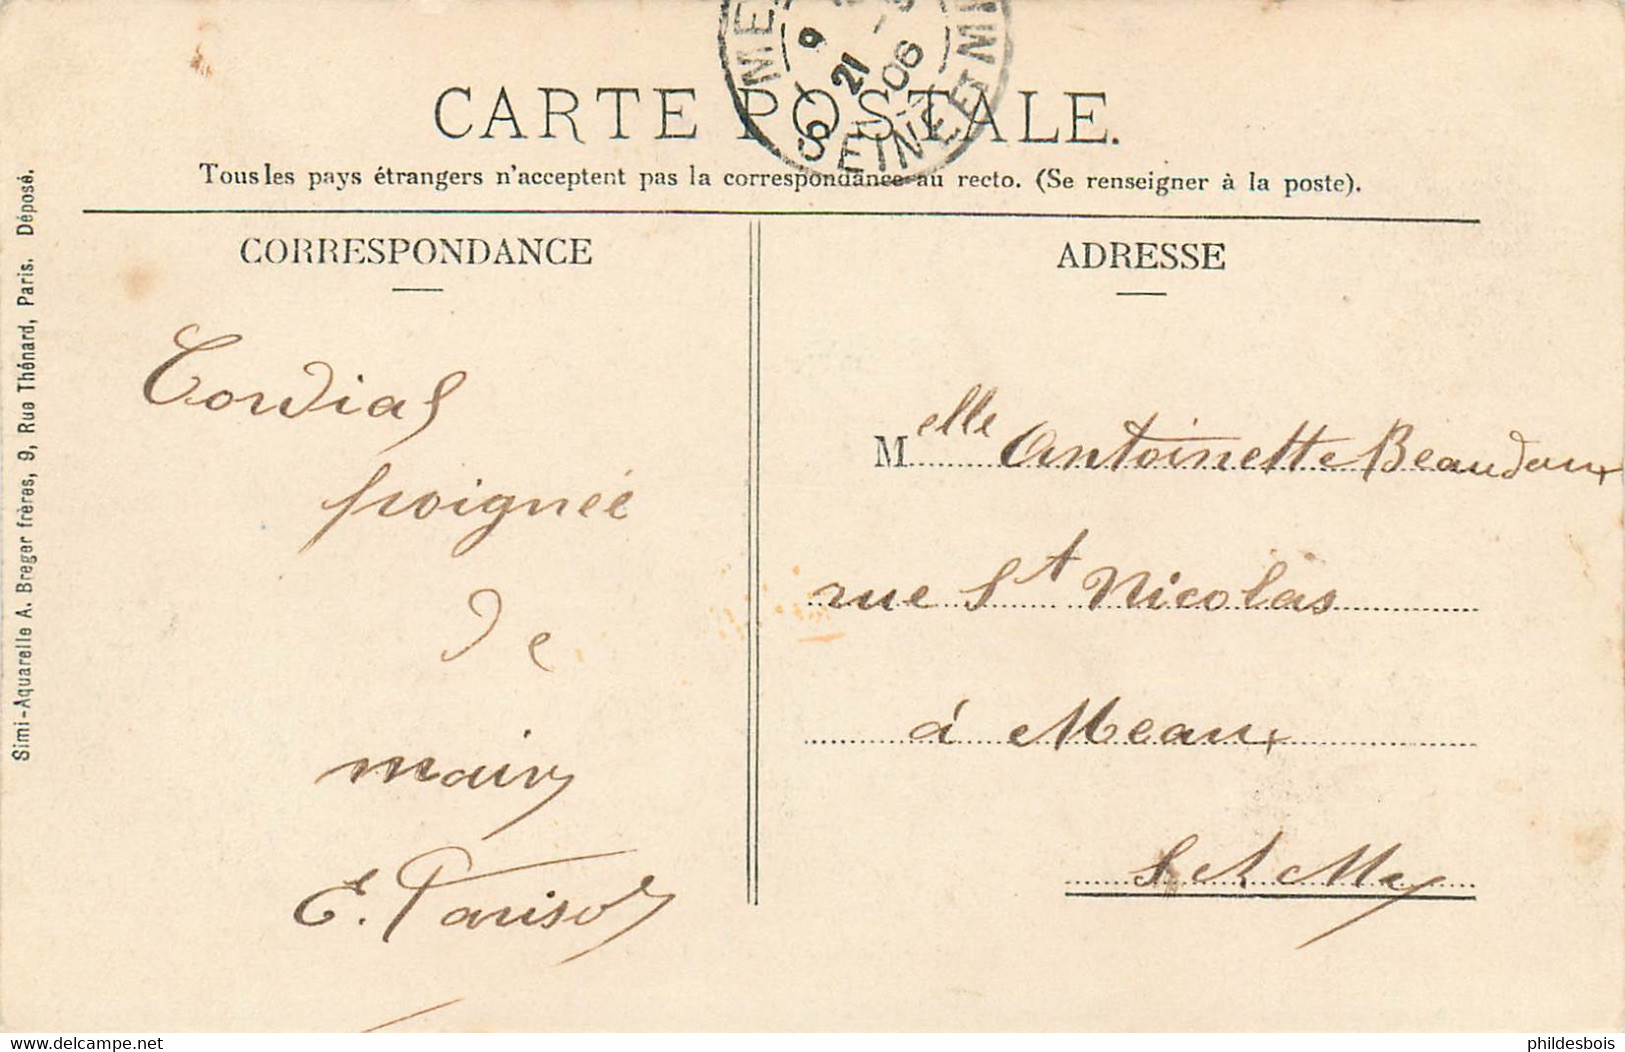 CARTE POSTALE.
Tous les pays étrangers n'acceptent pas la correspondance au recto. (Se renseigner à la poste).
CORRESPONDANCE
Cordial
poignée
de
main
E. Parisot
ADRESSE
Melle Antoinette Beaudoux
rue St Nicolas
à Meaux
S et Me
21
06
SEINE ET M
Simi-Aquarelle A. Breger frères, 9, Rue Thénard, Paris. Déposé.
www.delcampe.net
phildesbois